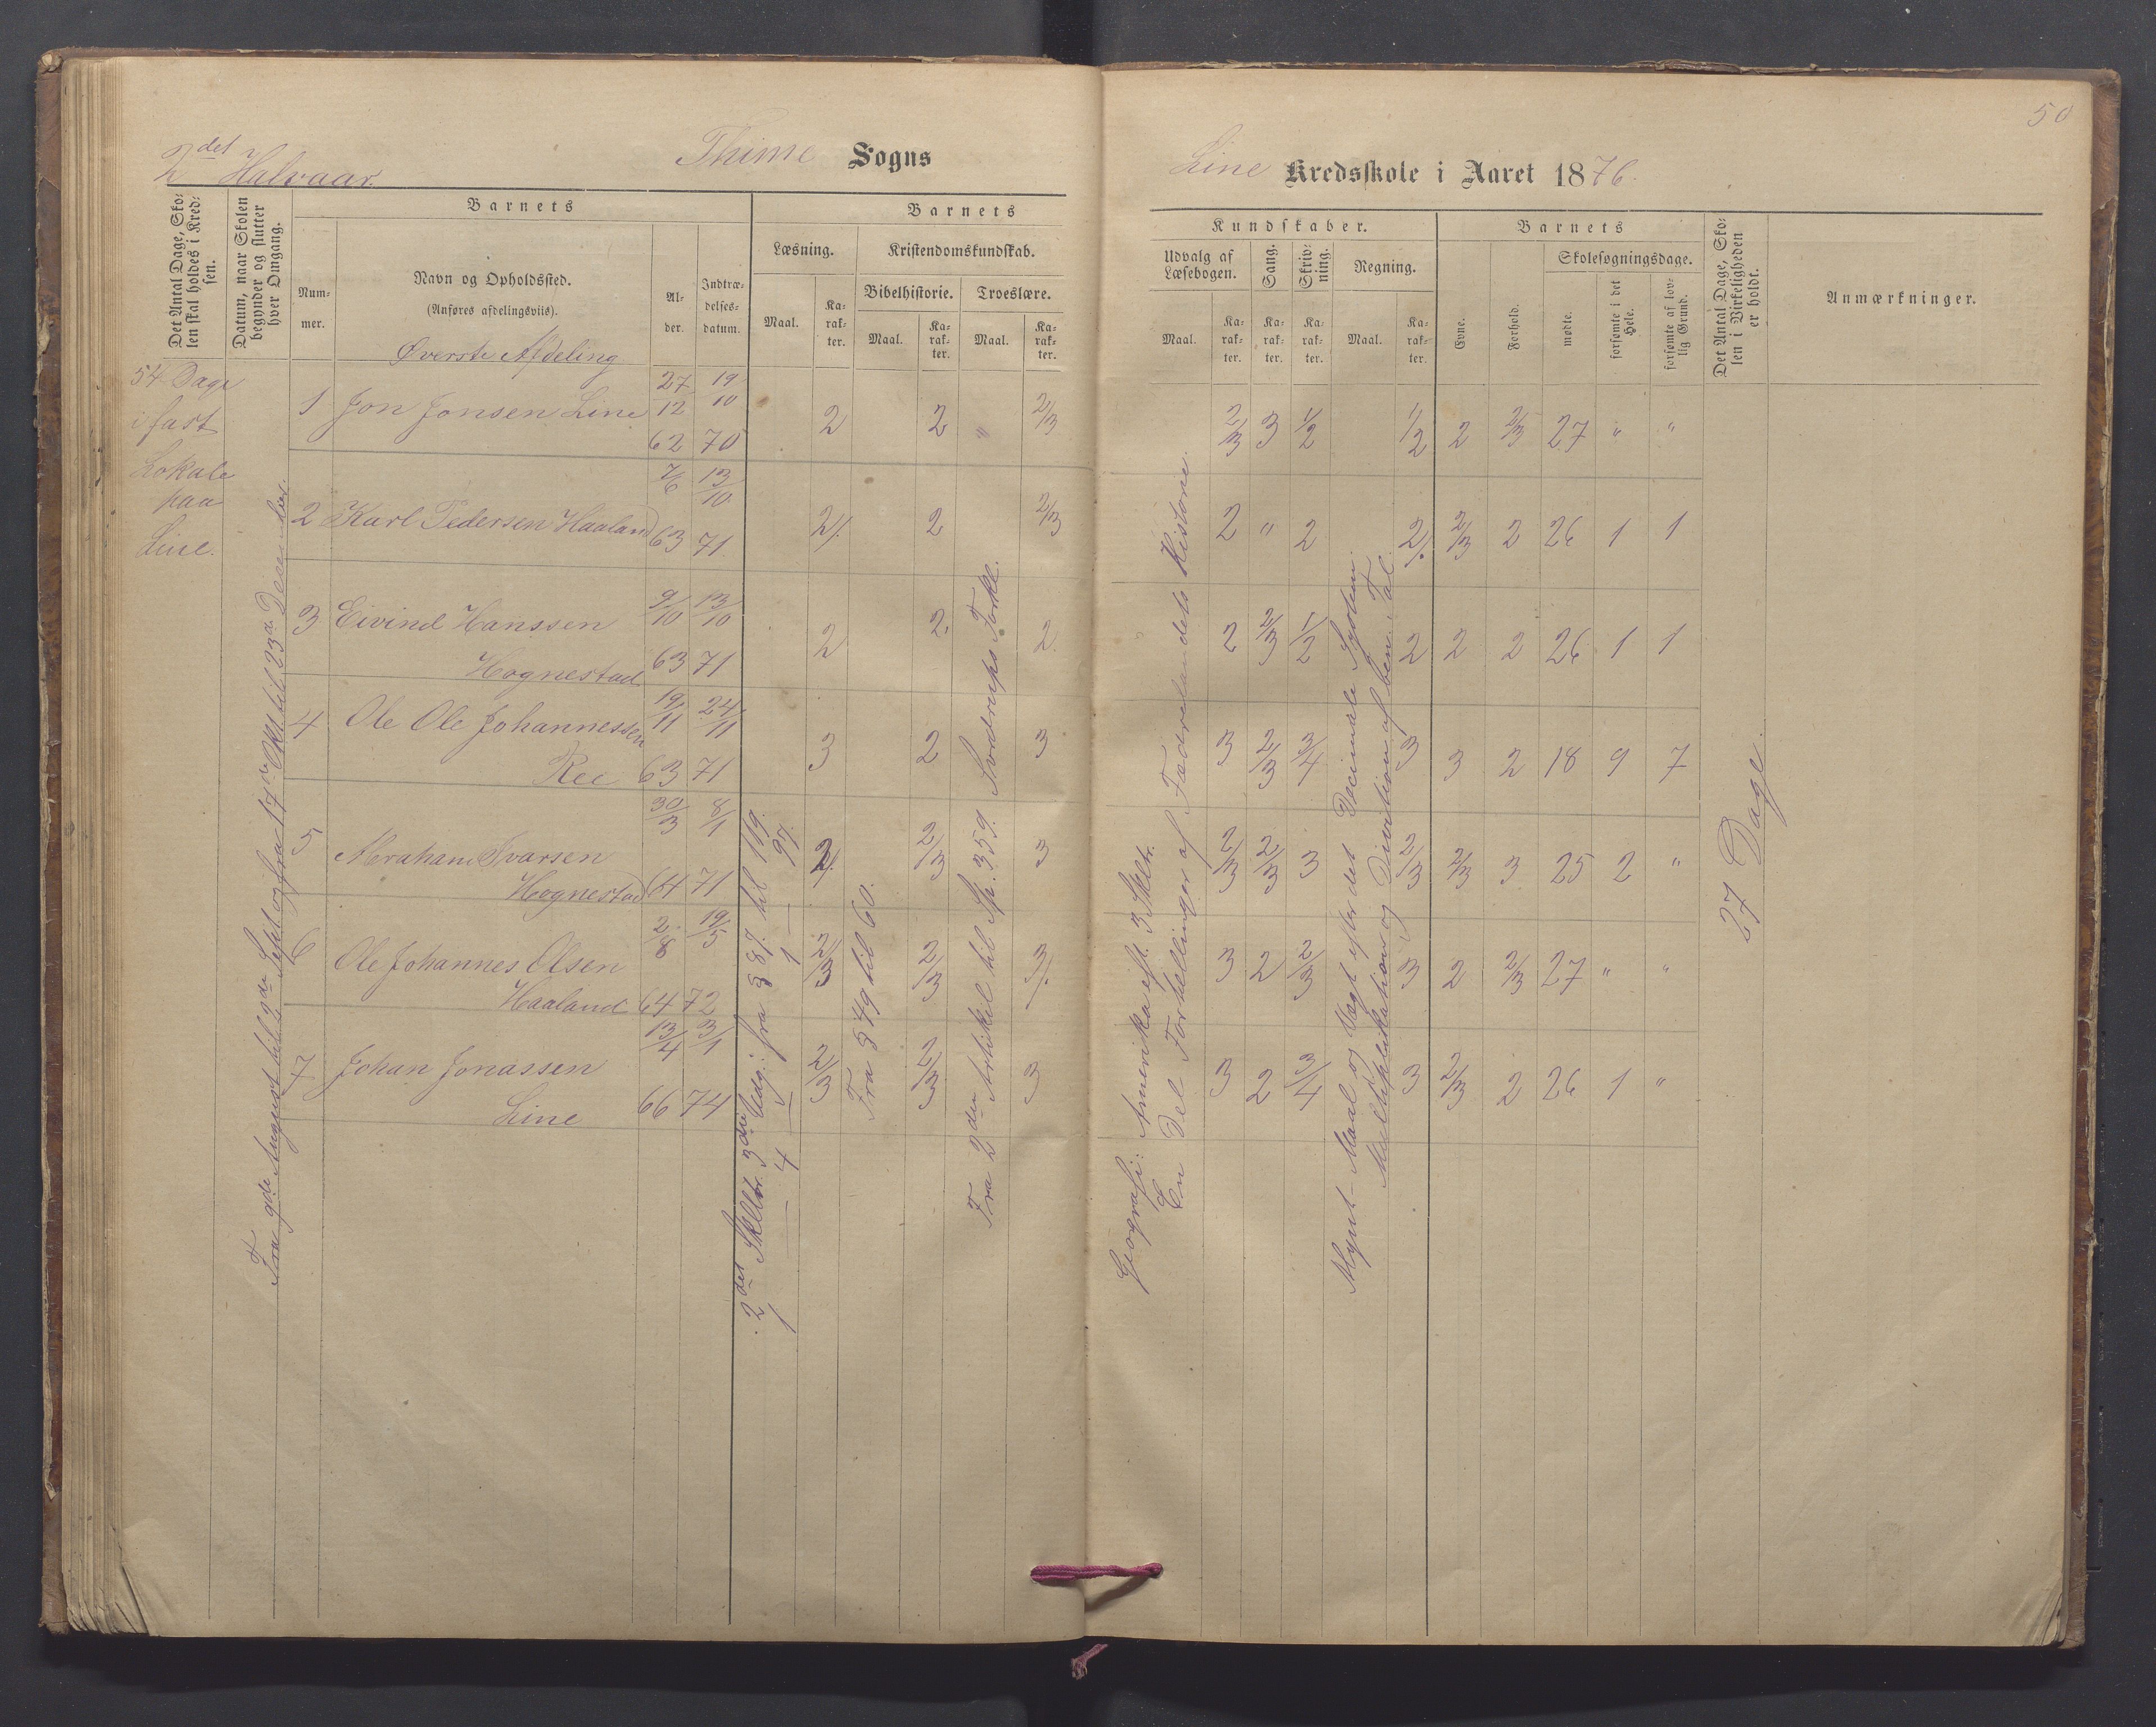 50
2det Halvaar.
Thime Sogns
Line Kredsskole i Aaret 1876.
Det Antal Dage, Sko-
len skal holdes i Kred-
sen.
Datum, naar Skolen
begynder og slutter
hver Omgang.
Barnets
Num-
mer.
Navn og Opholdssted.
(Anføres afdelingsviis).
Øverste Afdeling
Al-
der.
Indtræ-
delses-
datum.
Barnets
Læsning.
Maal.
Ka-
rak-
ter.
Kristendomskundskab.
Bibelhistorie.
Maal.
Ka-
rak-
ter.
Troeslære.
Maal.
Ka-
rak-
ter.
Kundskaber.
Udvalg af
Læsebogen.
Maal.
Ka-
rak-
ter.
Sang.
Ka-
rak-
ter.
Skriv-
ning.
Ka-
rak-
ter.
Regning.
Maal.
Ka-
rak-
ter.
Barnets
Evne.
Forhold.
Skolesøgningsdage.
mødte.
forsømte i det
Hele.
forsømte af lov-
lig Grund.
Det Antal Dage, Sko-
len i Virkeligheden
er holdt.
Anmærkninger.
54 Dage
i fast
Lokale
paa
Line.
Fra 9de August til 9de Sept og fra 17de Okt til 23de Dec
1 Jon Jonsen Line 27/12 62 19/10 70 2 2 " 2/3 2/3 3 1/2 1/2 2 2/3 27 " "
2 Karl Pedersen Haaland 7/6 63 13/10 71 2/. 2 2/3 2 " 2 2/. 2/3 2 26 1 1
3 Eivind Hanssen
Hognestad. 9/10 63 13/10 71 2 2. 2. 2 2/3 1/2 2 2 2 26 1 1
4 Ole Ole Johannessen
Ree 19/11 63 24/11 71 3 2 3 3 2/3 3/4 3 3 2 18 9 7
5 Abraham Ivarsen
Hognestad 30/3 64 8/1 71 2/. 2/3 3 2/3 2/3 3 2/3 2/3 3 25 2 "
6 Ole Johannes Olsen
Haaland 2/8 64 19/5 72 2/3 2/3 3/. 3 2 2/3 3 2 2/3 27 " "
7 Johan Jonassen
Line 13/4 66 3/1 74 2/3 2/3 3 3 2 3/4 3 2/3 2 26 1 "
2det Skeltr. 3die Udg: fra § 87. til 119.
1 — 4 — 1 — 97.
Fra § 49 til 60.
Fra 2den Artikel til Sp. 359. Sverdrups Forkl.
Geografi: Amerika eft. 3 Skltr.
En Del Fortællinger af Fædrelandets Historie.
Mynt- Maal og Vægt efter det Decimale System.
Multiplikation og Division af ben. Tal.
27 Dage.